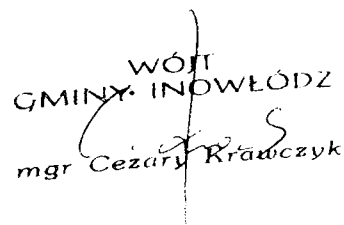 WÓJT
GMINY INOWŁÓDZ
mgr Cezary Krawczyk